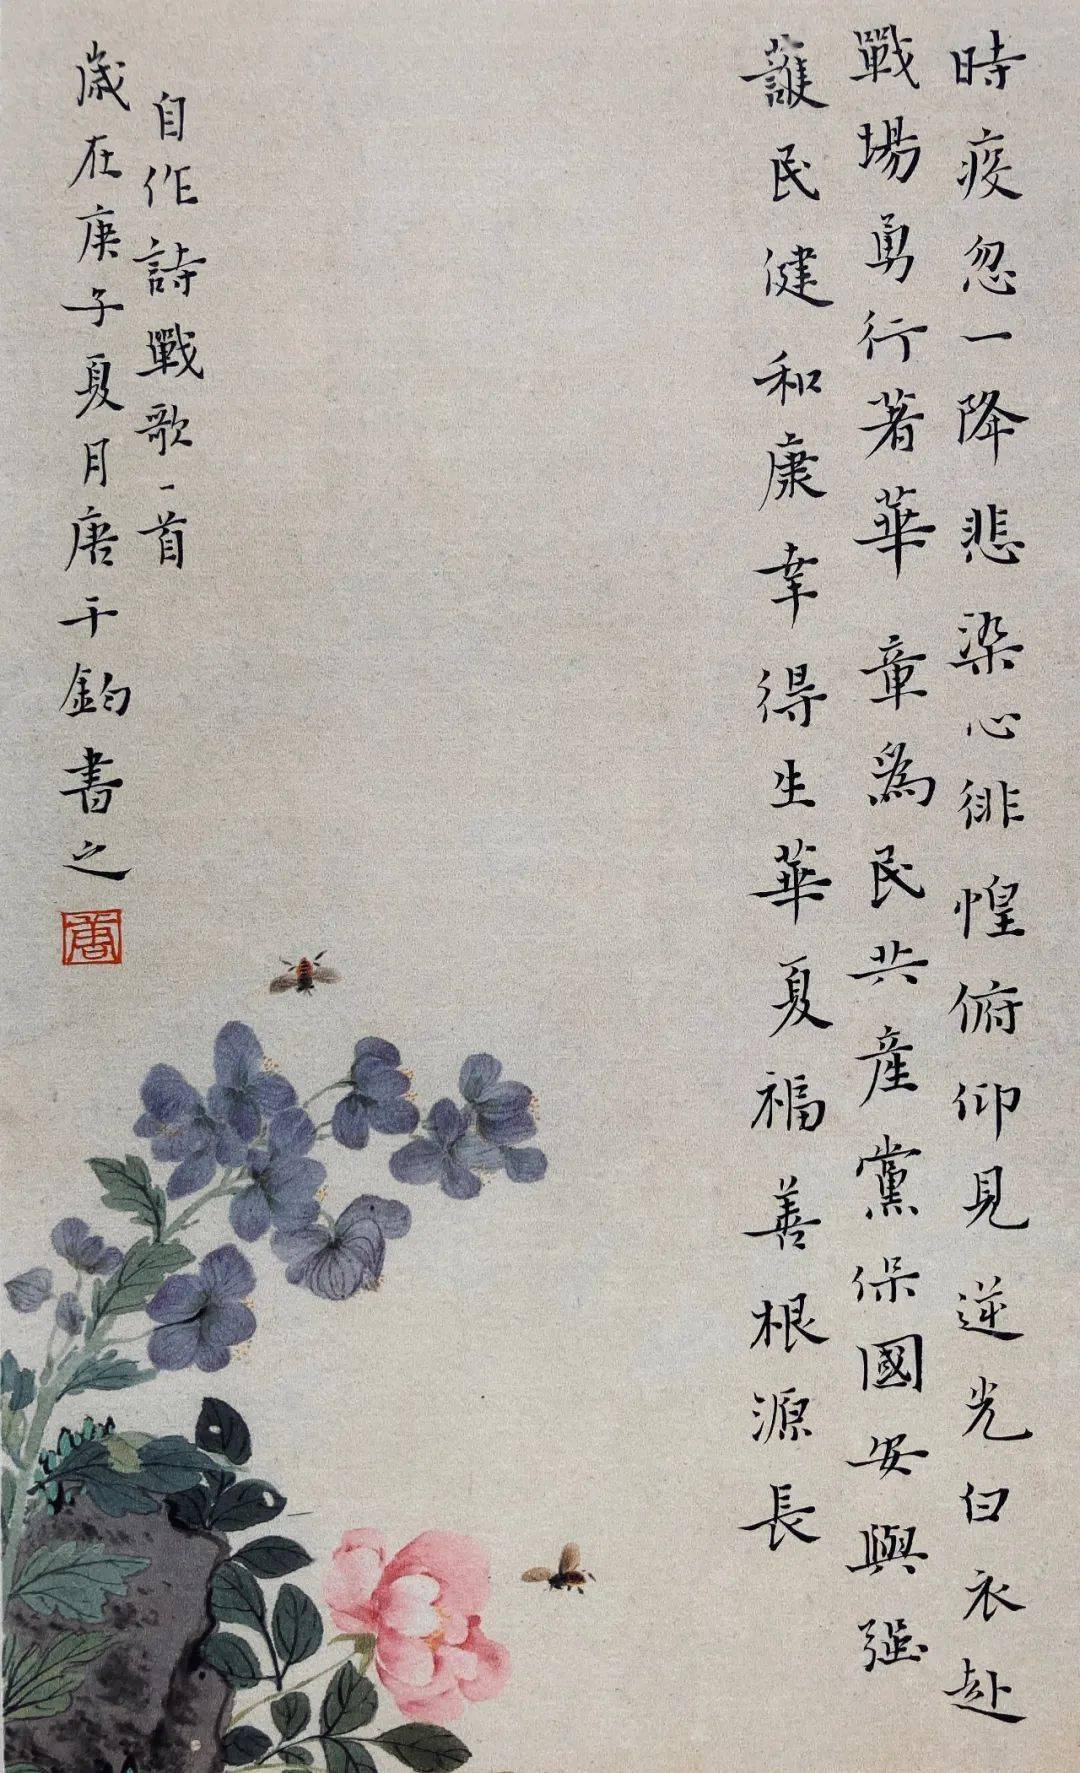 時疫忽一降悲染心徘惶俯仰見逆光白衣赴
戰場勇行著華章為民共產黨保國安與強
護民健和康幸得生華夏福善根源長
自作詩戰歌一首
歲在庚子夏月唐千鈞書之
唐